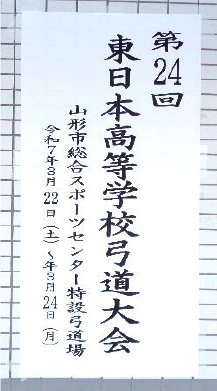 第24回
東日本高等学校弓道大会
山形市総合スポーツセンター特設弓道場
令和7年3月22日（土）～年3月24日（月）